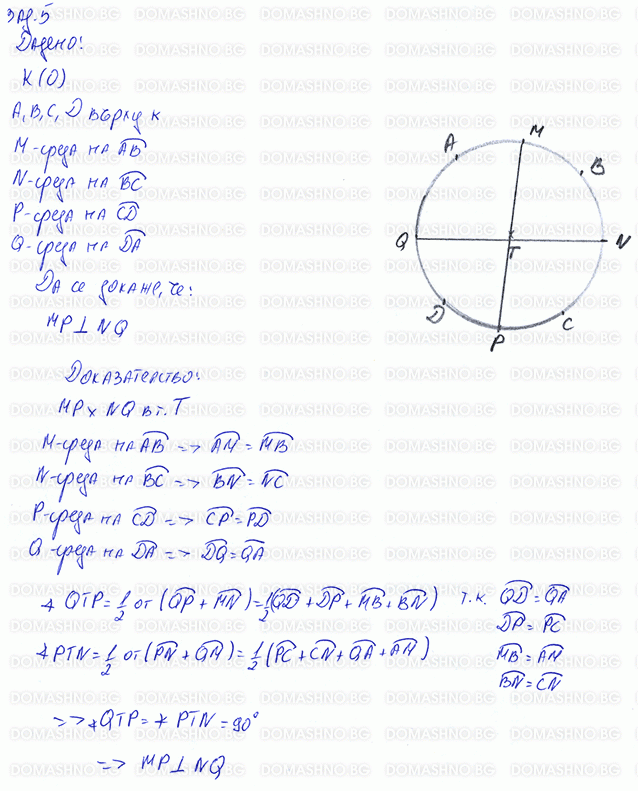 Зад.5
Дадено:
K(O)
A,B,C,D върху k
M-среда на AB
N-среда на BC
P-среда на CD
Q-среда на DA
Да се докаже, че:
MP⊥NQ
A
M
B
Q
T
N
D
P
C
Доказателство:
MP x NQ в т. T
M-среда на AB => AM = MB
N-среда на BC => BN = NC
P-среда на CD => CP = PD
Q-среда на DA => DQ = QA
∢ QTP = 1/2 от (QP + MN) = 1/2(QD + DP + MB + BN) т.к. QD = QA
DP = PC
∢ PTN = 1/2 от (PN + QM) = 1/2 (PC + CN + QA + AM)
MB = AM
BN = CN
=> ∢QTP = ∢ PTN = 90°
=> MP⊥NQ
DOMASHNO.BG